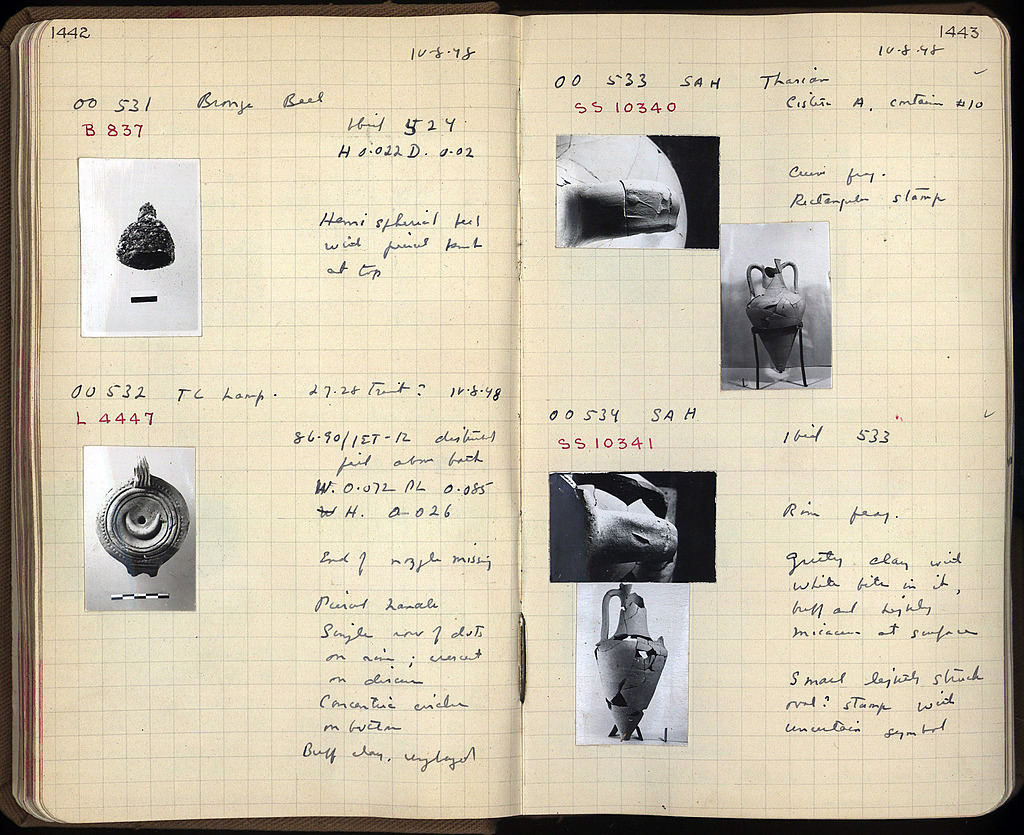 1442
10·8·48
OO 531 Bronze Bell
B 837
Ibid 524
H 0·022 D. 0·02
Hemispherical bell
with pierced knob
at top
OO 532 TC Lamp. 27·28 ? 10·8·48
L 4447
86-90/ disturbed
fill above
W. 0·072 PL 0·085
H. 0·026
End of nozzle missing
Pierced handle
Single row of dots
on rim; crescent
on discus
Concentric circles
on bottom
Buff clay, unglazed
1443
10·8·48
OO 533 SAH Thasian
SS 10340
Cistern A, container #10
Curvi frag.
Rectangular stamp
OO 534 SAH
SS 10341
Ibid 533
Rim frag.
Gritty clay with
white bits in it,
buff and lightly
micaceous at surface
Small lightly struck
oval? stamp with
uncertain symbol